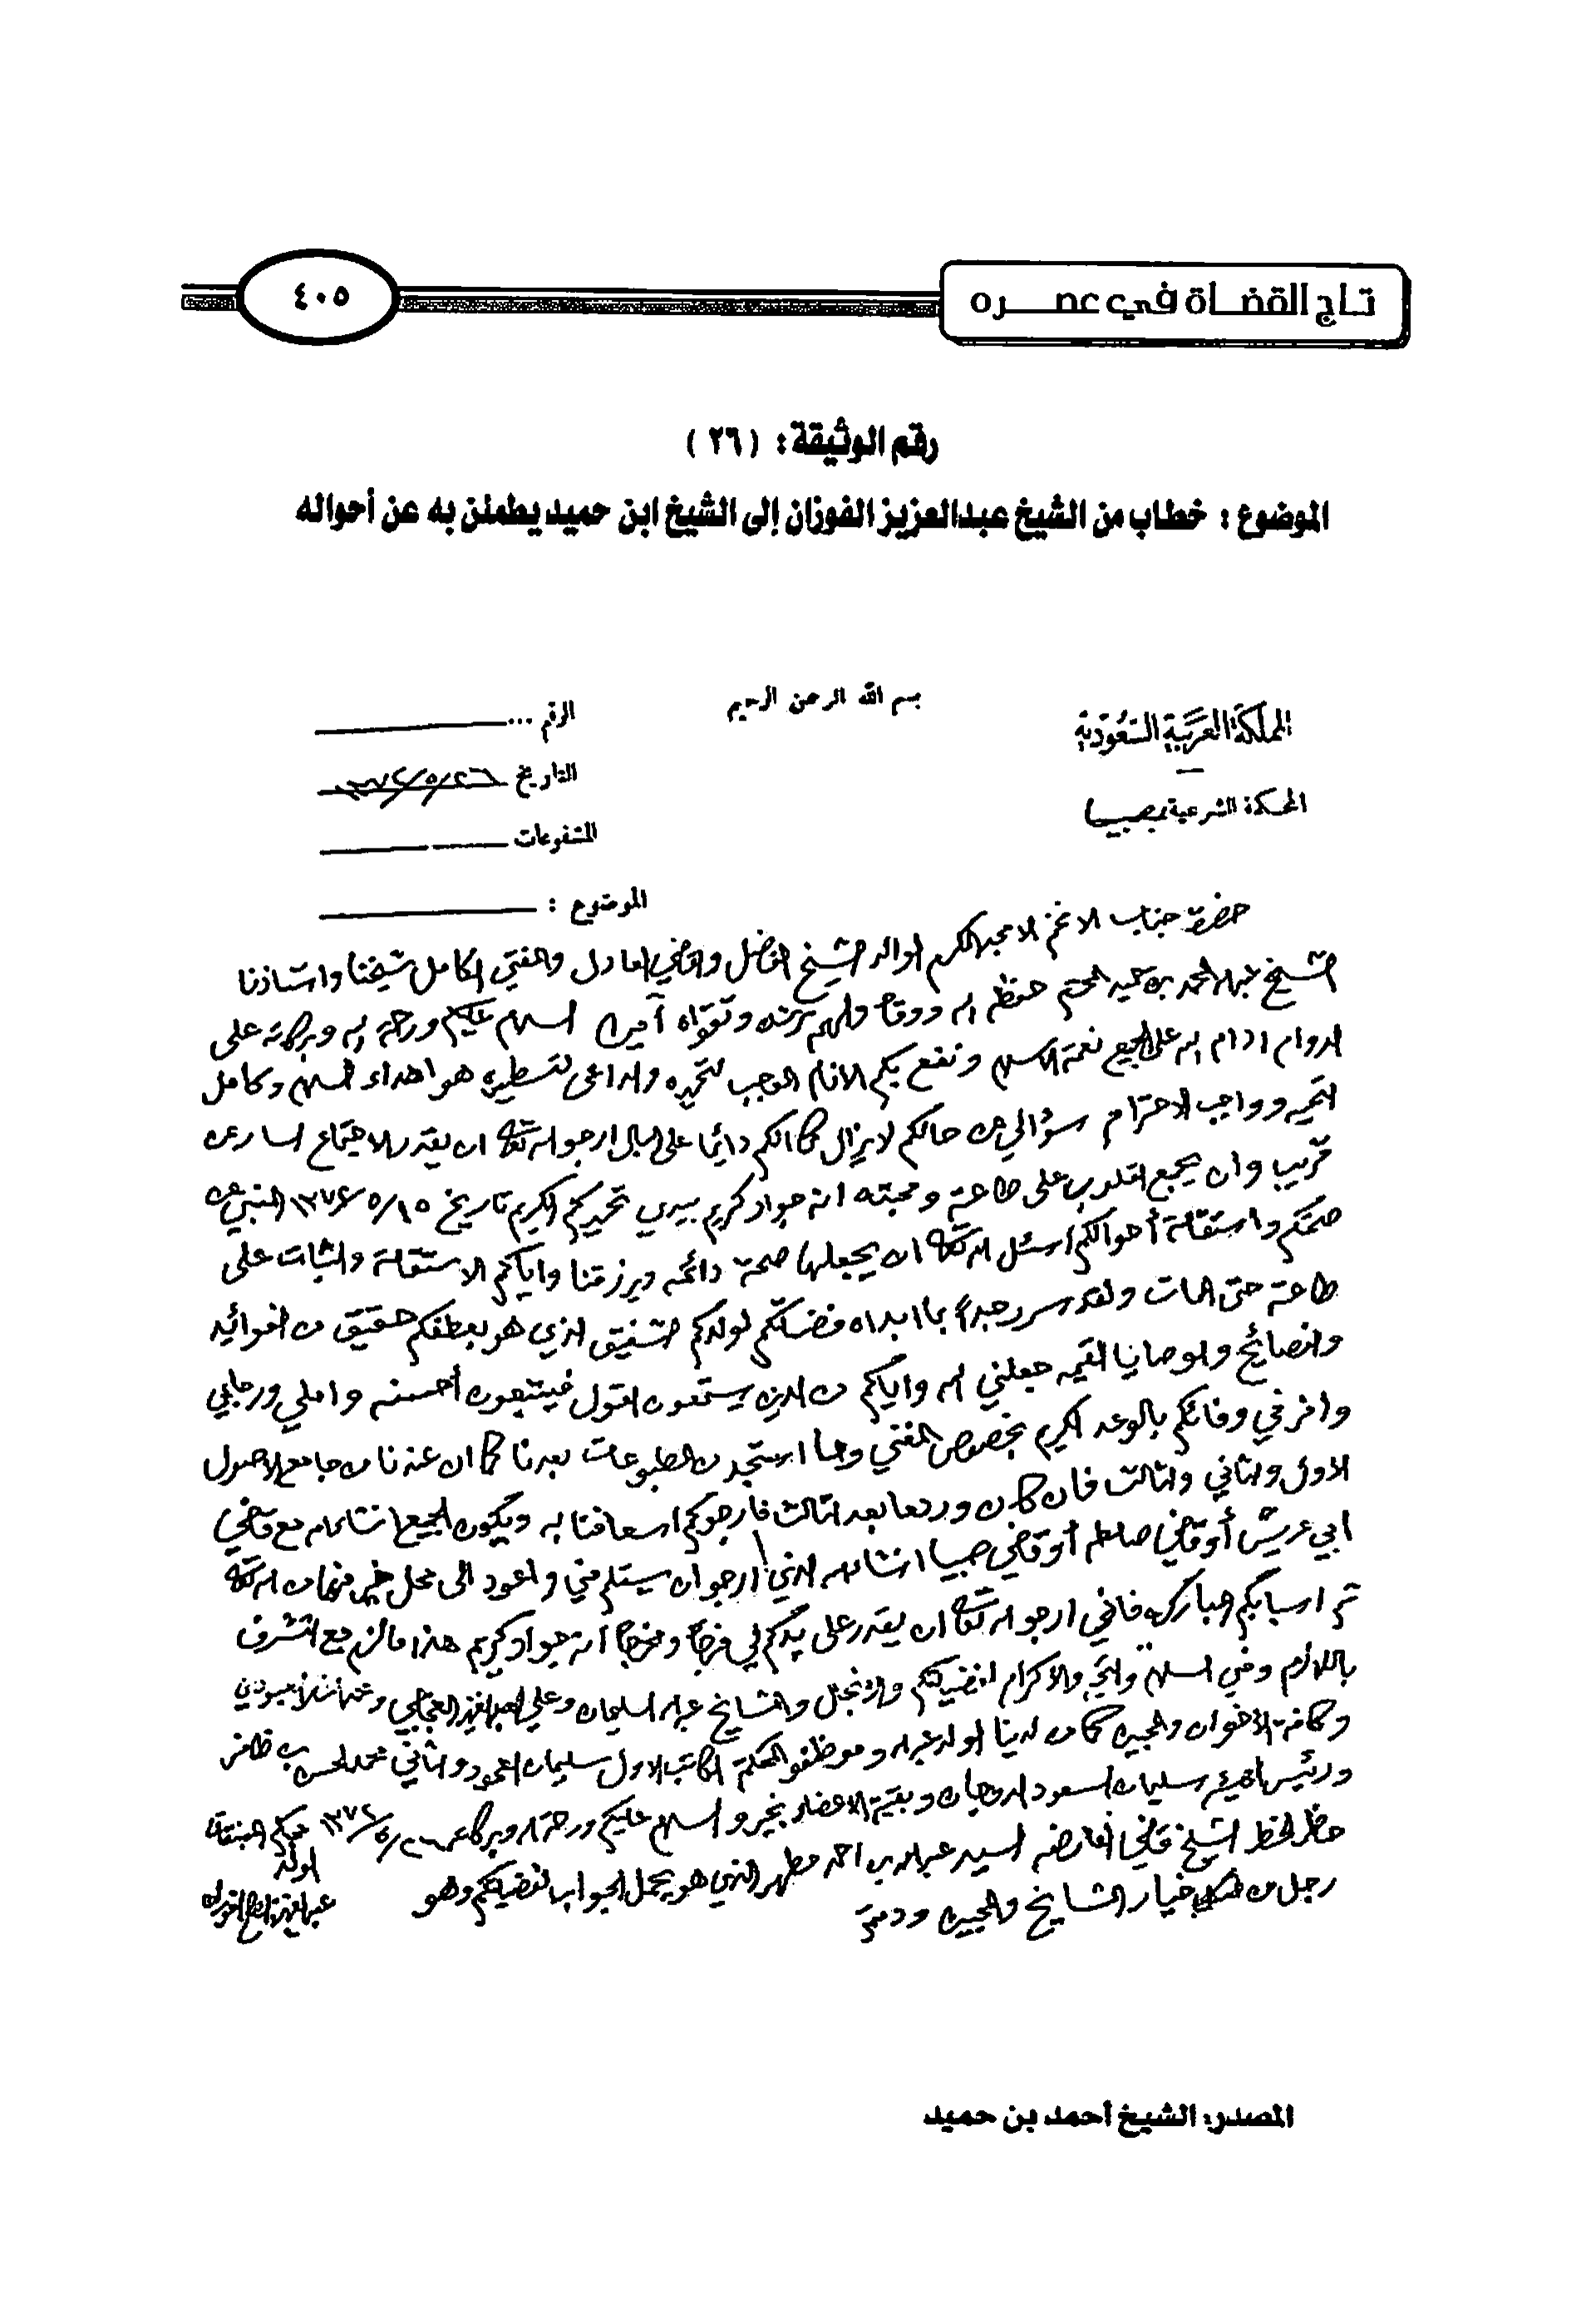 تاج القضاة في عصره
٤٠٥
رقم الوثيقة: (٢٦)
الموضوع: خطاب من الشيخ عبدالعزيز الفوزان إلى الشيخ ابن حميد يطمئن به عن أحواله
بسم الله الرحمن الرحيم
المملكة العربية السعودية
المحكمة الشرعية بصبيا
الرقم ...
التاريخ ١٣٧٤/٥/٢٦
المشفوعات
الموضوع:
حضرة جناب الافخم الامجد المكرم الوالد الشيخ الفاضل والقاضي العادل والمفتي الكامل شيخنا واستاذنا
الشيخ عبدالله بن حميد المحترم حفظه الله ووقاه والهمه رشده وتقواه آمين السلام عليكم ورحمة الله وبركاته على
الدوام ادام الله على الجميع نعمة الاسلام ونفع بكم الانام الموجب لتحريره والداعي لتسطيره هو اهداء السلام وكامل
التحية وواجب الاحترام سؤالي عن حالكم لا يزال كما انكم دائما على البال ارجو الله تعالى ان يقدر الاجتماع السار عن
قريب وان يجمع القلوب على طاعته ومحبته انه جواد كريم بيدي تحريركم الكريم تاريخ ١٣٧٤/٥/١٥ المنبي عن
صحتكم واستقامة أحوالكم اسئل الله تعالى ان يجعلها صحة دائمة ويرزقنا واياكم الاستقامة والثبات على
طاعته حتى الممات ولقد سررت جداً بما ابداه فضيلتكم لولدكم الشفيق الذي هو بعطفكم حقيق من الفوائد
والنصائح والوصايا القيمة جعلني الله واياكم من الذين يستمعون القول فيتبعون أحسنه واملي ورجايي
وافر في وفائكم بالوعد الكريم بخصوص المغني وما استجد من المطبوعات بعدنا كما ان عندنا من جامع الاصول
الاول والثاني والثالث فان كان ورد ما بعد الثالث فارجوكم اسعافنا به ويكون الجميع انشاء الله مع قاضي
ابي عريش أو قاضي صامطه أو قاضي صبيا انشاء الله الذي ارجو ان يستلم مني واعود الى محل خير منها من الله تعالى
ثم اسبابكم المباركة فانني ارجو الله تعالى ان يقدر على يدكم لي فرجاً ومخرجاً انه جواد كريم هذا ما لزم مع التشرف
باللازم وفي السلام والتحية والاكرام لفضيلتكم والانجال والمشايخ عبدالله السليمان وعلي
وكافة الاخوان والمحبين كما من لدينا الولد عبدالله وموظفو المحكمة الكاتب الاول سليمان الحمود والثاني محمد الحسن بن ظافر
ورئيس الهيئة سليمان السعود وبقية الاعضاء بخير والسلام عليكم ورحمة الله وبركاته ١٣٧٤/٥/٢٦
الشيخ قاضي العارضه السيد عبدالله بن احمد مطهر الذي هو يحمل الجواب لفضيلتكم وهو
رجل من خيار المشايخ والمحبين ودمتم
الولد
عبدالعزيز الفوزان
المصدر: الشيخ أحمد بن حميد